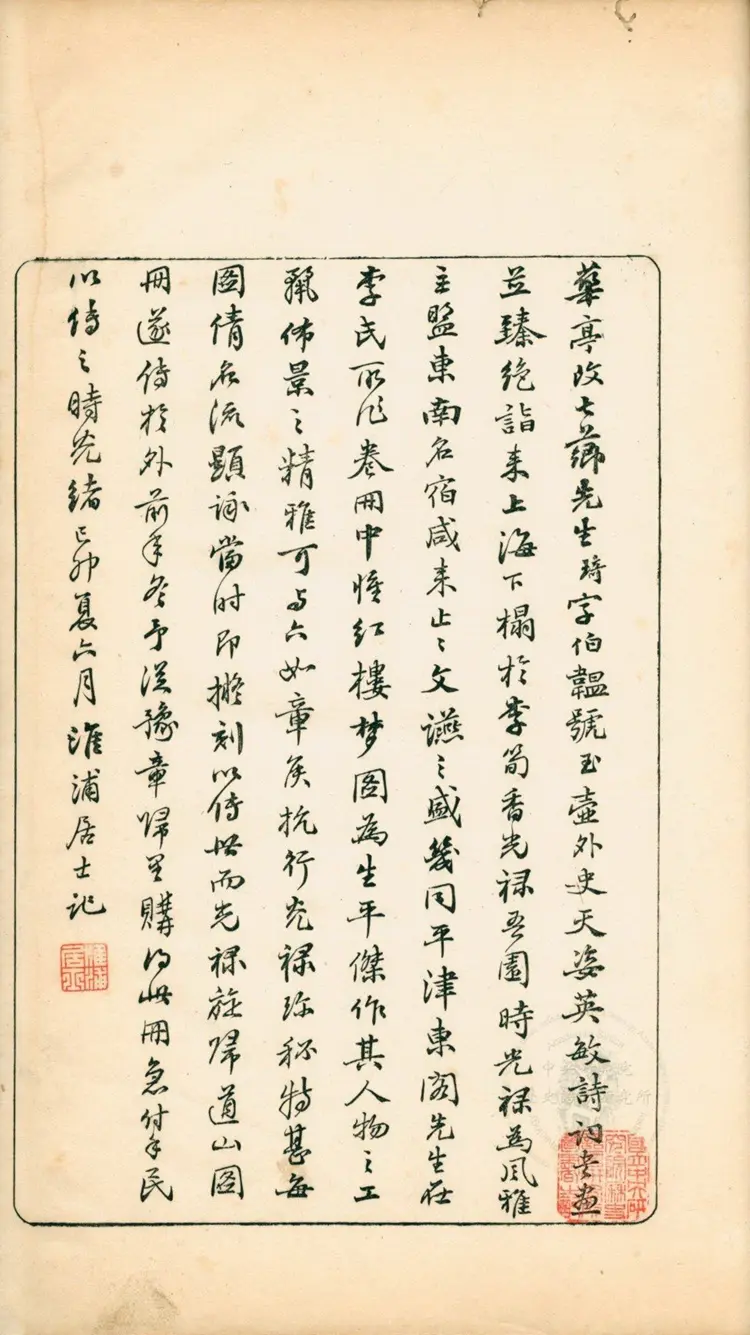 華亭改七薌先生琦字伯韞號玉壺外史天姿英敏詩詞書畫
並臻絕詣来上海下榻於李筍香光祿吾園時光祿為風雅
主盟東南名宿咸来止止文讌之盛幾同平津東閣先生在
李氏所作卷冊中惟紅樓梦圖為生平傑作其人物之工
麗佈景之精雅可與六如章侯抗行光祿珍秘特甚每
圖倩名流題詠當时即擬刻以傳世而光祿旋歸道山圖
冊遂傳於外前年冬予從豫章歸里購得此冊急付手民
以傳之時光緒己卯夏六月淮浦居士記
淮浦居士